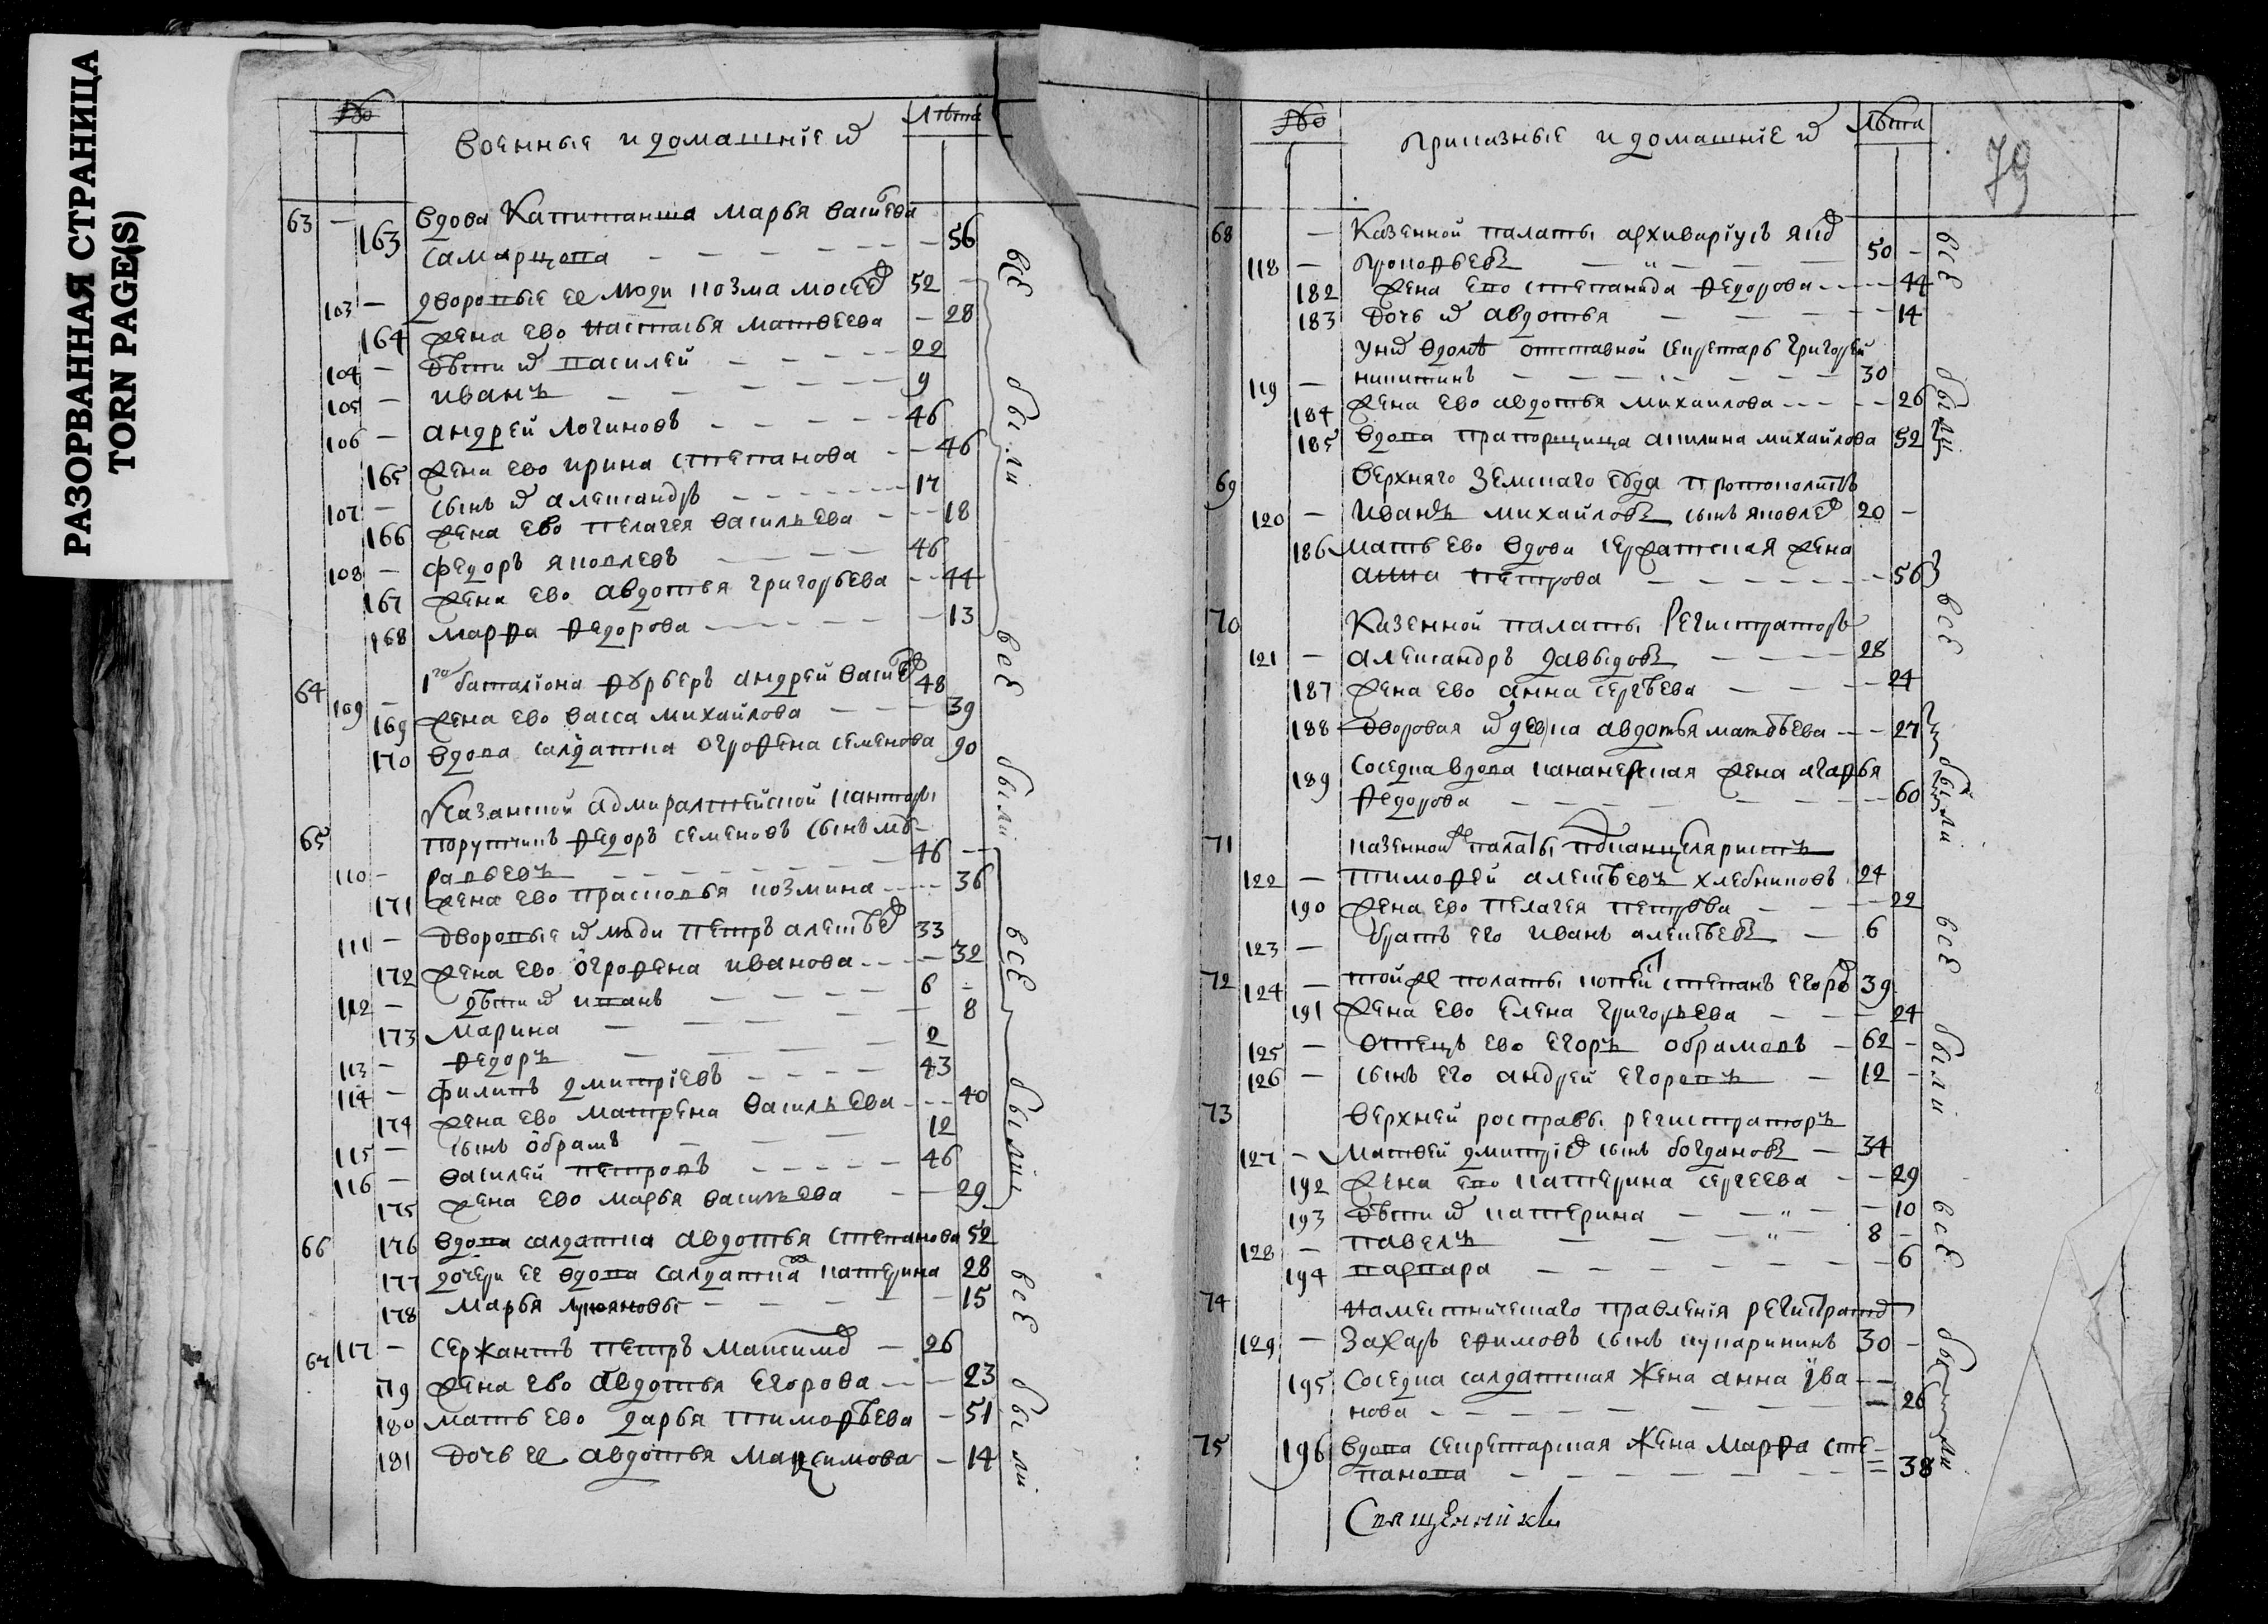 РАЗОРВАННАЯ СТРАНИЦА
TORN PAGE(S)
№ Военные и домашние их Лѣта
63 — вдова Капитанша марья васильева
163 самарцова — 56
103 — дворовые ее люди козма мосеев 52 —
164 жена ево настасья матвеева — 28
104 — дѣти их василей 22
105 — иванъ 9
106 — андрей логиновъ 46
165 жена ево ирина степанова — 46
107 — сынъ их александръ 17
166 жена ево пелагея васильева — 18
108 — федоръ яковлевъ 46
167 жена ево авдотья григорьева — 44
168 марфа федорова — 13
64 109 — 1го баталиона фурьеръ андрей васильев 48
169 жена ево васса михайлова 39
170 вдова салдатка огрофена семенова 90
Казанской адмиралтейской канторы
65 порутчикъ федоръ семеновъ сынъ
110 — 46 —
171 жена ево прасковья козмина 36
111 — дворовые их люди петръ алексѣев 33
172 жена ево огрофена иванова 32
112 — дѣти их иванъ 6 —
173 марина 8
113 — федоръ 2
114 — филипъ дмитріевъ 43
174 жена ево матрена васильева 40
115 — сынъ обрамъ 12
116 — василей петровъ 46
175 жена ево марья васильева — 29
66 176 вдова салдатка авдотья степанова 52
177 дочери ее вдова салдатка катерина 28
178 марья лукояновы — 15
67 117 — сержантъ петръ максимов — 26
179 жена ево авдотья егорова — 23
180 мать ево дарья тимофѣева — 51
181 дочь ее авдотья максимова — 14
все были
все были
все были
все были
№ приказные и домашние их Лѣта
79
68 — Казенной палаты архиваріусъ яков
118 — прокофьевъ 50 —
182 жена ево степанида федорова 44
183 дочь их авдотья 14
у них вдомѣ отставной секретарь григорей
119 — никитинъ 30
184 жена ево авдотья михаилова 26
185 вдова прапорщица акилина михайлова 52
69 верхняго земскаго суда протоколистъ
120 — иванъ михайловъ сынъ яковлев 20 —
186 мать ево вдова сержатская жена
анна петрова 56
70 Казенной палаты регистраторъ
121 — александръ давыдовъ 28
187 жена ево анна сергѣева 24
188 дворовая их девка авдотья матвѣева 27
189 соседка вдова канонерская жена агафья
федорова 60
71 казенной палаты подканцеляристъ
122 — тимофей алексѣевъ хлебниковъ 24
190 жена ево пелагея петрова 22
123 — братъ его иванъ алексѣевъ — 6
72 124 — той же полаты копеист степанъ егоров 39
191 жена ево елена григорьева 24
125 — отецъ ево егоръ обрамовъ — 62 —
126 — сынъ его андрей егоровъ — 12 —
73 верхней росправы регистраторъ
127 — матвей дмитріев сынъ богдановъ — 34
192 жена ево катерина сергеева 29
193 дѣти их катерина 10
128 — павелъ 8 —
194 варвара 6
74 наместническаго правленія регистратор
129 — захаръ ефимовъ сынъ купарининъ 30 —
195 соседка салдатская жена анна ива
нова 26
75 196 вдова секретарская жена марфа сте
панова 38
все были
все были
все были
все были
Священникъ